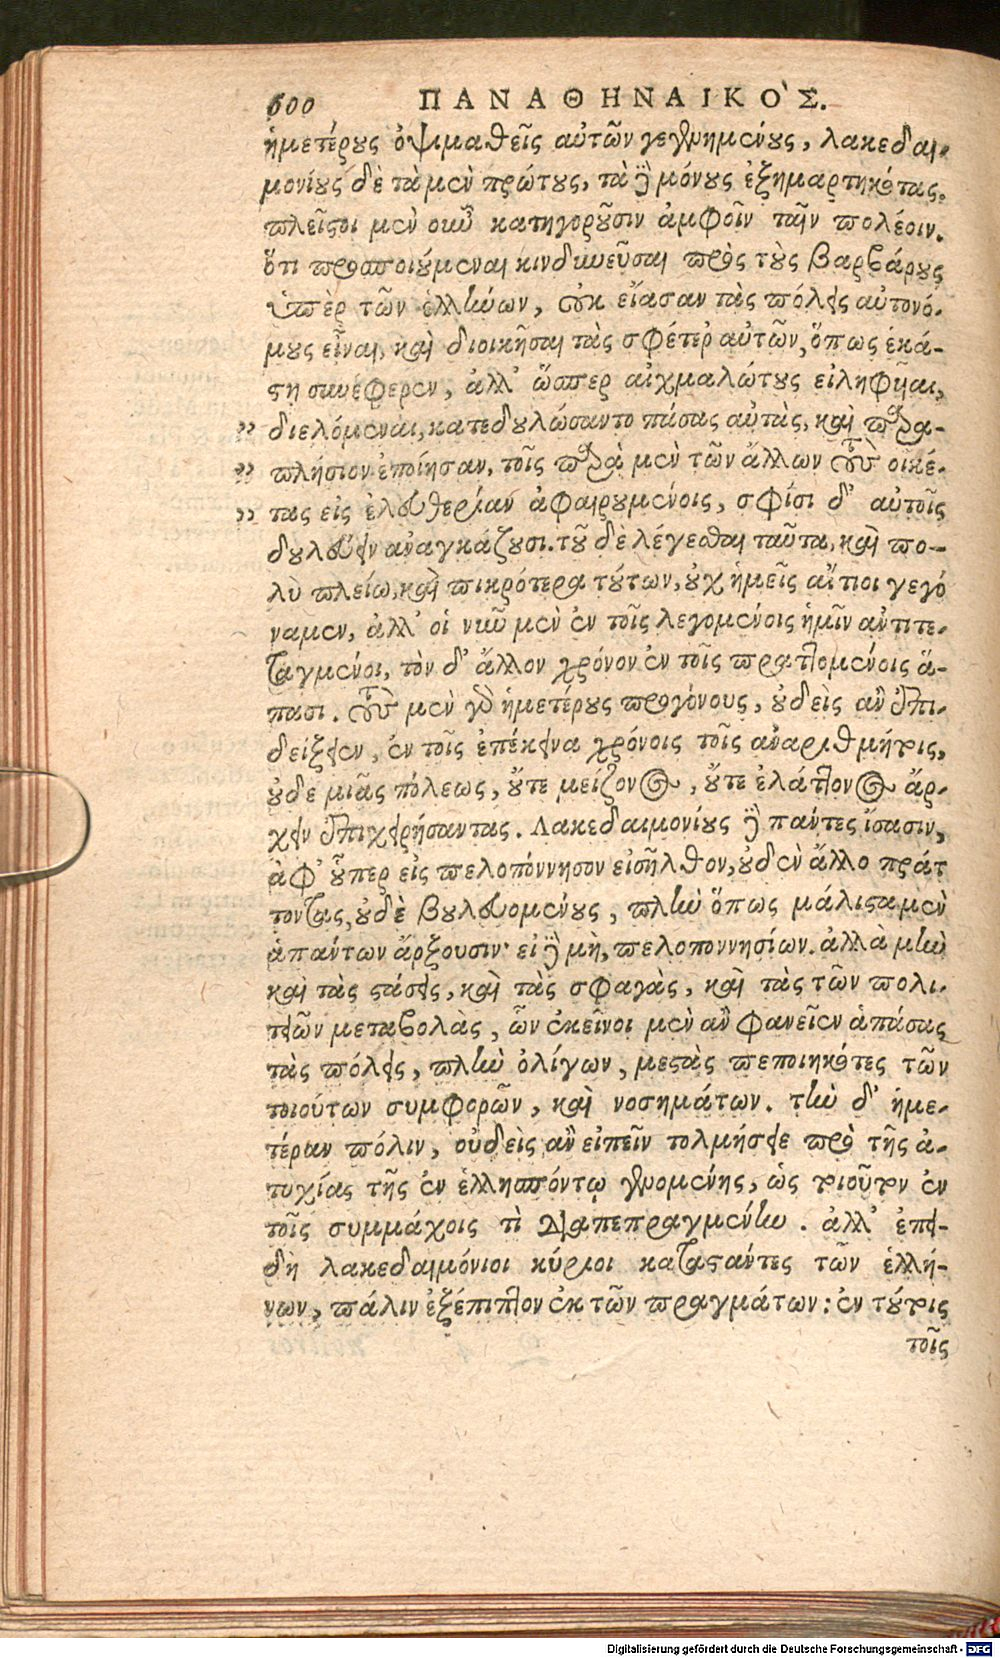 600 ΠΑΝΑΘΗΝΑΙΚΟ`Σ.
ἡμετέρους ὀψιμαθεῖς αὐτῶν γεγενημένους, λακεδαι-
μονίους δὲ τὰ μὲν πρώτους, τὰ δὲ μόνους ἐξημαρτηκότας.
πλεῖστοι μὲν οὖν κατηγοροῦσιν ἀμφοῖν ταῖν πολέοιν.
ὅτι προσποιούμεναι κινδυνεῦσαι πρὸς τοὺς βαρβάρους
ὑπὲρ τῶν ἑλλήνων, οὐκ εἴασαν τὰς πόλεις αὐτονό-
μους εἶναι, καὶ διοικῆσαι τὰς σφέτερ αὐτῶν, ὅπως ἑκά-
στη συνέφερεν, ἀλλ' ὥσπερ αἰχμαλώτους εἰληφῆαι,
διελόμεναι, κατεδουλώσαντο πάσας αὐτὰς, καὶ παρα-
πλήσιον ἐποίησαν, τοῖς παρὰ μὲν τῶν ἄλλων τοὺς οἰκέ-
τας εἰς ἐλευθερίαν ἀφαιρουμένοις, σφίσι δ' αὐτοῖς
δουλεύειν ἀναγκάζουσι. τοῦ δὲ λέγεσθαι ταῦτα, καὶ πο-
λὺ πλείω, καὶ πικρότερα τούτων, οὐχ ἡμεῖς αἴτιοι γεγό
ναμεν, ἀλλ' οἱ νῦν μὲν ἐν τοῖς λεγομένοις ἡμῖν ἀντιτε-
ταγμένοι, τὸν δ' ἄλλον χρόνον ἐν τοῖς πραττομένοις ἅ-
πασι. τοὺς μὲν γὰρ ἡμετέρους προγόνους, οὐδεὶς ἂν ἐπι-
δείξειεν, ἐν τοῖς ἐπέκεινα χρόνοις τοῖς ἀναριθμήτοις,
οὐδε μιᾶς πόλεως, οὔτε μείζονος, οὔτε ἐλάττονος ἄρ-
χειν ἐπιχειρήσαντας. Λακεδαιμονίους δὲ πάντες ἴσασιν,
ἀφ' οὗπερ εἰς πελοπόννησον εἰσῆλθον, οὐδὲν ἄλλο πράτ
τοντας, οὐδὲ βουλευομένους, πλὴν ὅπως μάλιστα μὲν
ἁπάντων ἄρξουσιν· εἰ δὲ μὴ, πελοποννησίων. ἀλλὰ μὴν
καὶ τὰς στάσεις, καὶ τὰς σφαγὰς, καὶ τὰς τῶν πολι-
τειῶν μεταβολὰς, ὧν ἐκεῖνοι μὲν ἂν φανεῖεν ἁπάσας
τὰς πόλεις, πλὴν ὀλίγων, μεστὰς πεποιηκότες τῶν
τοιούτων συμφορῶν, καὶ νοσημάτων. τὴν δ' ἡμε-
τέραν πόλιν, οὐδεὶς ἂν εἰπεῖν τολμήσειε πρὸ τῆς ἀ-
τυχίας τῆς ἐν ἑλλησπόντῳ γενομένης, ὡς τοιοῦτον ἐν
τοῖς συμμάχοις τὶ διαπεπραγμένην. ἀλλ' ἐπει-
δὴ λακεδαιμόνιοι κύριοι καταστάντες τῶν ἑλλή-
νων, πάλιν ἐξέπιπτον ἐκ τῶν πραγμάτων: ἐν τούτοις
τοῖς
Digitalisierung gefördert durch die Deutsche Forschungsgemeinschaft - DFG